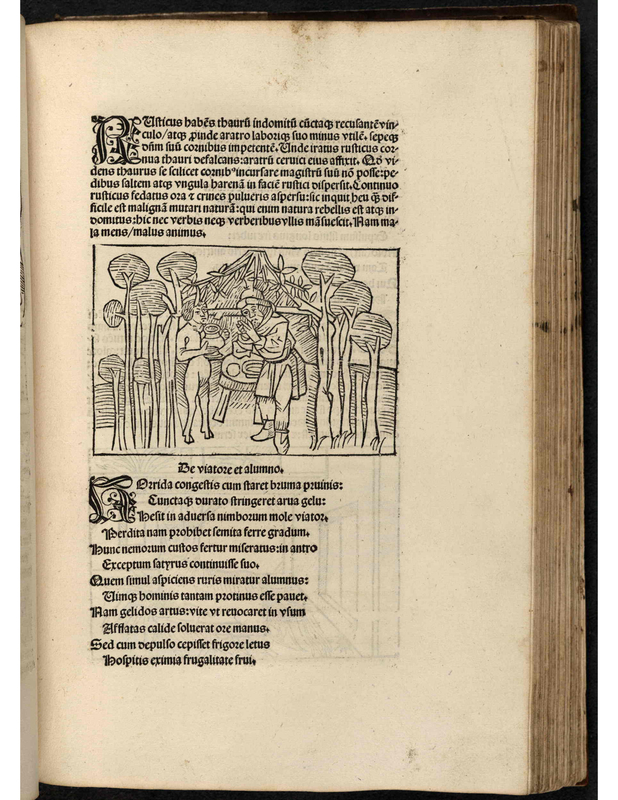 RUsticus habẽs thaurũ indomitũ cũctaqꝫ recusantẽ vin⸗
culo/atqꝫ ꝓinde aratro laboriqꝫ suo minus vtilẽ. sepeqꝫ
dñm suũ cornibus impetentẽ. Unde iratus rusticus cor⸗
nua thauri defalcans: aratrũ ceruici eius affixit. Qď vi⸗
dens thaurus se scilicet cornibꝰ incursare magistrũ suũ nõ posse: pe⸗
dibus saltem atqꝫ vngula harenã in faciẽ rustici dispersit. Continuo
rusticus fedatus ora ⁊ crines pulueris aspersu: sic inquit heu ꝙ̃ dif⸗
ficile est malignã mutari naturã: qui enim natura rebellis est atqꝫ in⸗
domitus: hic nec verbis neqꝫ verberibus vllis mãsuescit. Nam ma⸗
la mens/malus animus.
De viatore et alumno.
HOrrida congestis cum staret bruma pruinis:
Cunctaqꝫ durato stringeret arua gelu:
Hesit in aduersa nimborum mole viator.
Perdita nam prohibet semita ferre gradum.
Hunc nemorum custos fertur miseratus: in antro
Exceptum satyrus continuisse suo.
Quem simul aspiciens ruris miratur alumnus:
Uimqꝫ hominis tantam protinus esse pauet.
Nam gelidos artus: vite vt reuocaret in vsum
Afflatas calide soluerat ore manus.
Sed cum depulso cepisset frigore letus
Hospitis eximia frugalitate frui.